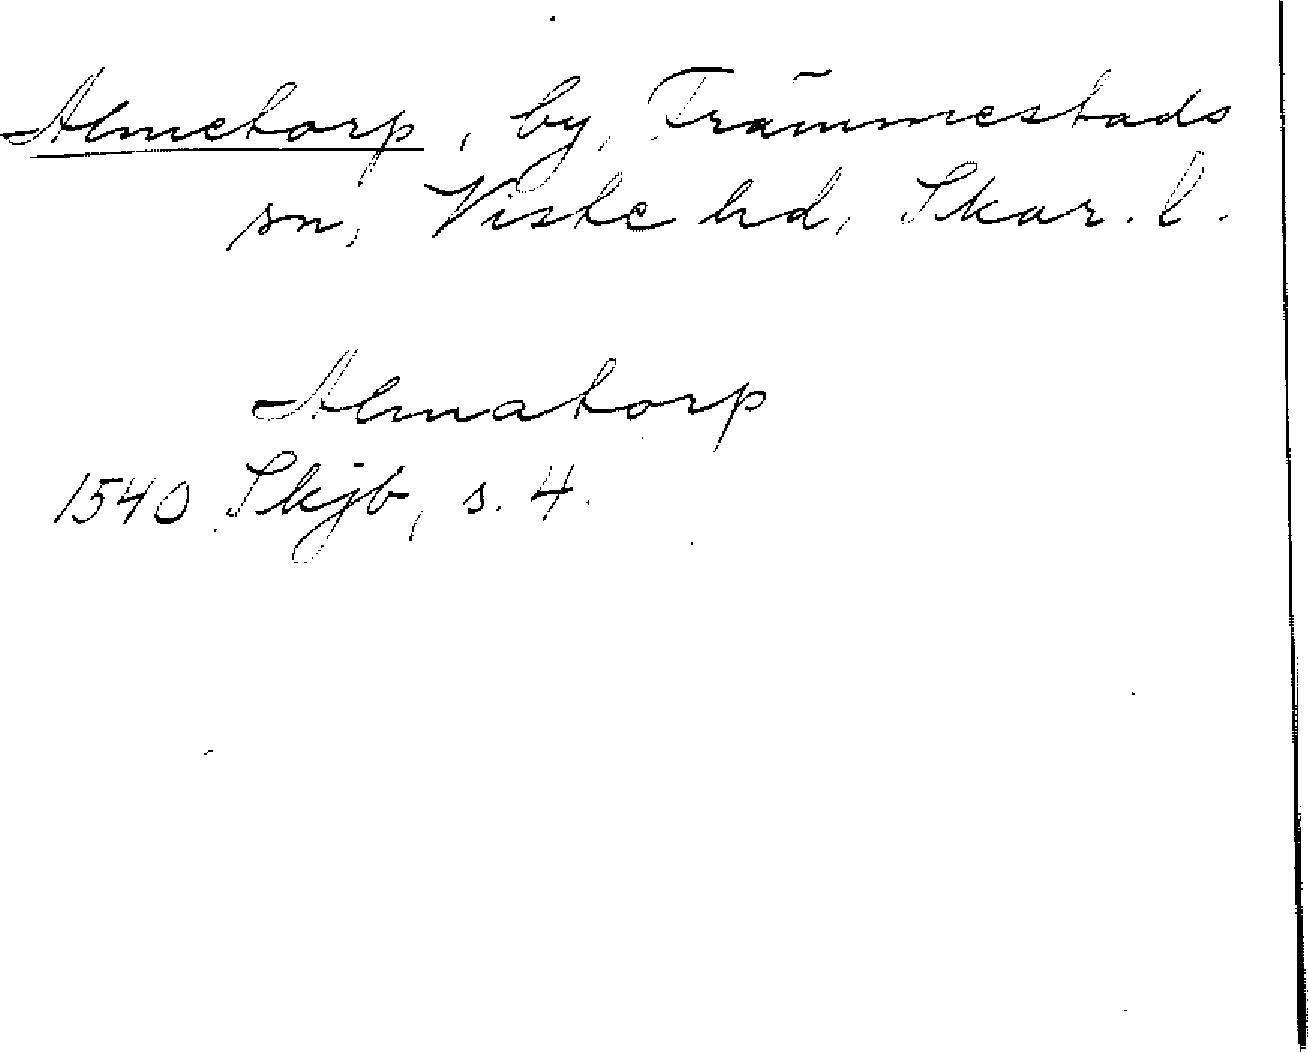 Almetorp, by, Trämmestads
sn, Viste hd, Skar. l.
Almatorp
1540 Skjb, s. 4.